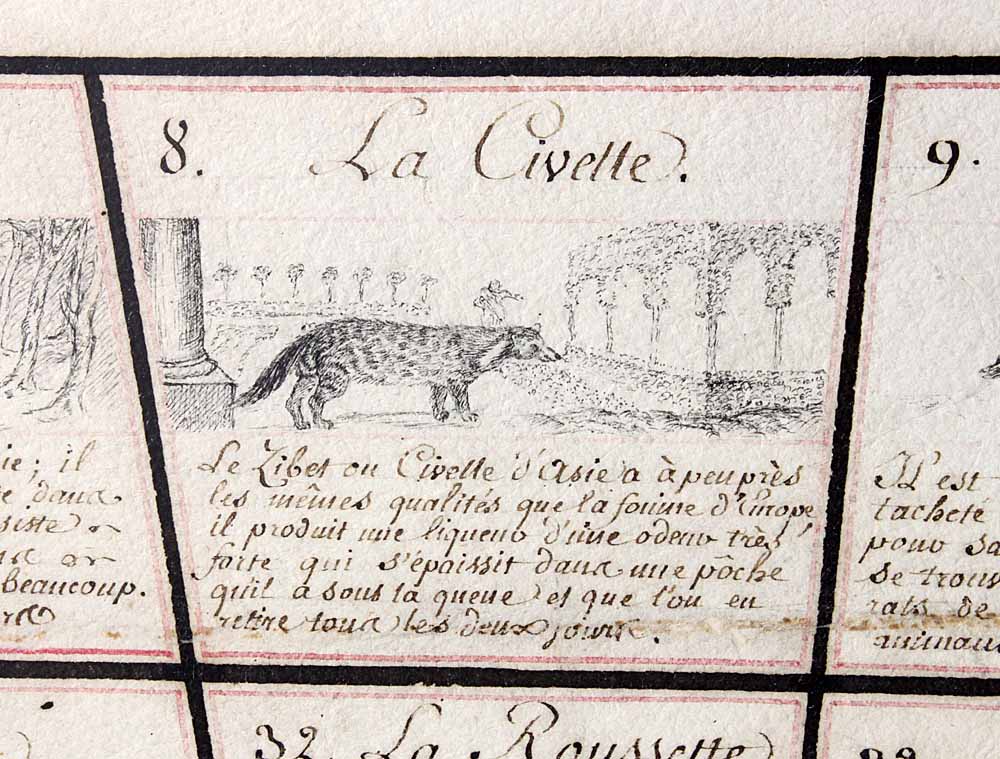 8. La Civette.
9.
Le Zibet ou Civette d'Asie a à peu près
les mêmes qualités que la fouine d'Europe,
il produit une liqueur d'une odeur très
forte qui s'épaissit dans une pôche
qu'il a sous la queue et que l'on en
retire tous les deux jours.
ie; il
dans
siste
Beaucoup.
Il est
tacheté
pour sa
se trouv
rats de
animaux
32. La Roussette